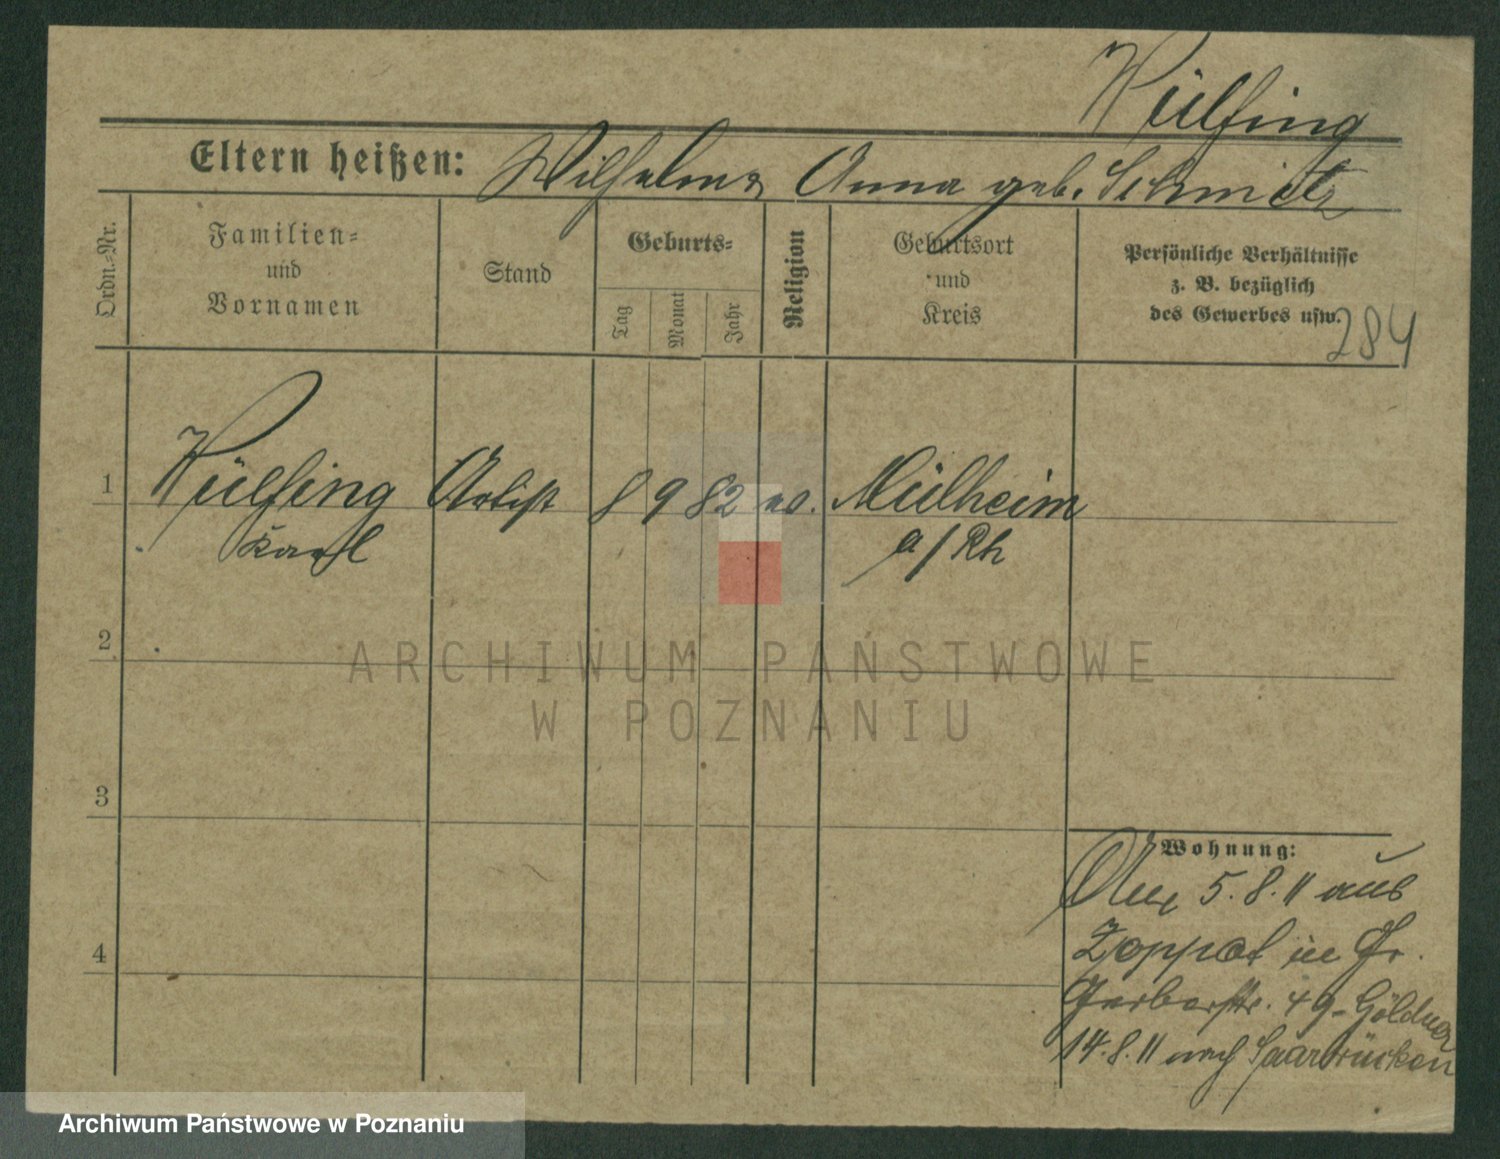 Wülfing
Eltern heißen: Wilhelm u Anna geb. Schmitz
Ordn.-Nr.
Familien-
und
Vornamen
Stand
Geburts-
Tag
Monat
Jahr
Religion
Geburtsort
und
Kreis
Persönliche Verhältnisse
z. B. bezüglich
des Gewerbes usw.
284
1 Wülfing Artist 8 9 82 ev. Mülheim
Karl a/Rh
2
ARCHIWUM PAŃSTWOWE
W POZNANIU
3
Wohnung:
5. 8. 11 aus
Zoppot in Gr.
Gerberstr. 49 - Göldner
14. 8. 11 nach Saarbrücken
4
Archiwum Państwowe w Poznaniu